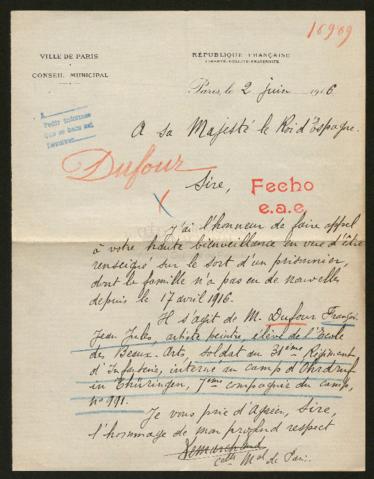 10909
VILLE DE PARIS
CONSEIL MUNICIPAL
RÉPUBLIQUE FRANÇAISE
LIBERTÉ-ÉGALITÉ-FRATERNITÉ
Paris, le 2 juin 1916
A
Pedir informes
que se haga así
A Sa Majesté le Roi d'Espagne.
Dufour
Sire,
Fecho
e.a.e.
J'ai l'honneur de faire appel
à votre haute bienveillance en vue d'être
renseigné sur le sort d'un prisonnier,
dont la famille n'a pas eu de nouvelles
depuis le 17 avril 1916.
Il s'agit de M. Dufour François
Jean Jules, artiste peintre, élève de l'École
des Beaux-Arts, soldat au 31ème Régiment
d'Infanterie, interné au camp d'Ohrdruf
in Thüringen, 7ème compagnie du camp,
n° 991.
Je vous prie d'agréer, Sire,
l'hommage de mon profond respect
Lemarchand
Cer Mal de Paris.